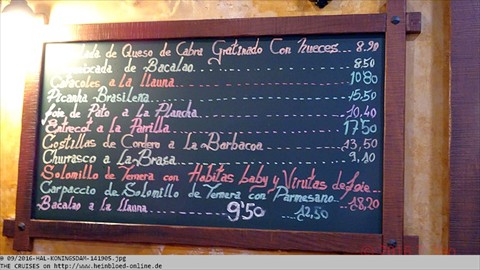 lada de Queso de Cabra Gratinado Con nueces... 8.90
de Bacalao 8.50
Caracoles a la llauna 10'80
Picanha Brasileña 15.50
foie de Pato a La Plancha 10.40
Entrecot a la Parrilla 17'50
Costillas de Cordero a la Barbacoa 13,50
Churrasco a La Brasa 9,10
Solomillo de Ternera con Habitas baby y Virutas de foie 18,20
Carpaccio de Solomillo de Ternera con Parmesano 12,50
Bacalao a la llauna 9'50
@ 09/2016-HAL-KONINGSDAM-141905.jpg
THE CRUISES on http://www.heinbloed-online.de